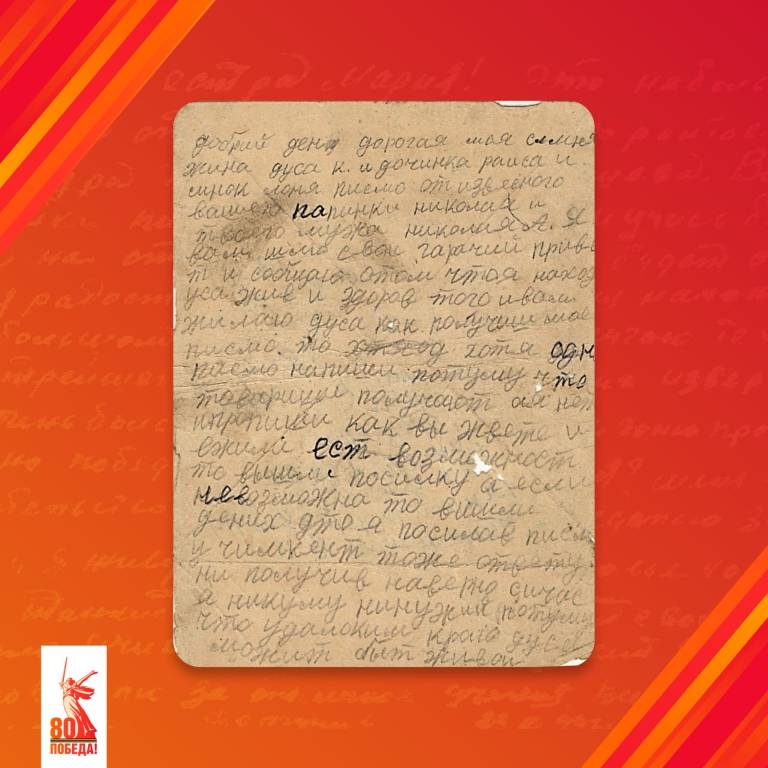 добрий ден дорогая моя
жина дуса к. и дочинка раиса и
синок лоня писмо от извесного
вашего папинки николая и
твоего мужа николия А. Я
вам шлю свой гарачий приве
т и сообщаю отом чтоя нахож
уса жив и здоров того ивам
жилаю дуса как получиш мое
писмо. то хотя одн
писмо напиши потуму что
товарищи получают ая нет
ипропиши как вы жвете и
ежили ест возможност
то вышли посилку а если
невозможна то вишли
дених дто я посилав писм
у чимкент тоже ответу
ни получив наверно сичас
я никуму нинужий потуму
что удалоким краю дуса
можит быт живой
80
ПОБЕДА!